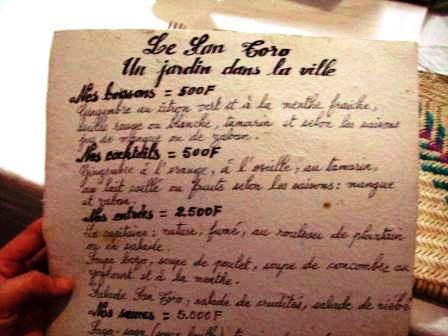 Le San Toro
Un jardin dans la ville
Nos boissons = 500F
Gingembre au citron vert et à la menthe fraîche,
oseille rouge ou blanche, tamarin et selon les saisons
jus de mangues ou de zaban.
Nos cocktails = 500F
Gingembre à l'orange, à l'oseille, au tamarin,
au lait caillé ou fruits selon les saisons: mangue
et zaban.
Nos entrées = 2.500F
Le capitaine: nature, fumé, au rouleau de plantain
ou en salade.
soupe de poulet, soupe de concombre au
yaourt et à la menthe.
Salade San Toro, salade de crudités, salade de
Nos sauces = 5.000F